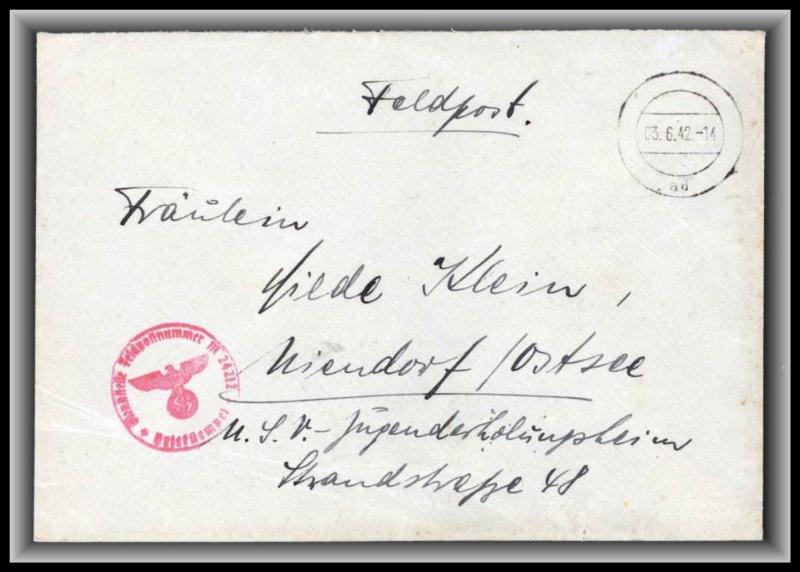 Feldpost.
03.6.42.-14
ad
Fräulein
Hilde Klein,
Niendorf/Ostsee
N.S.V.-Jugenderholungsheim
Strandstraße 48
Dienststelle Feldpostnummer M 24212
* Briefstempel